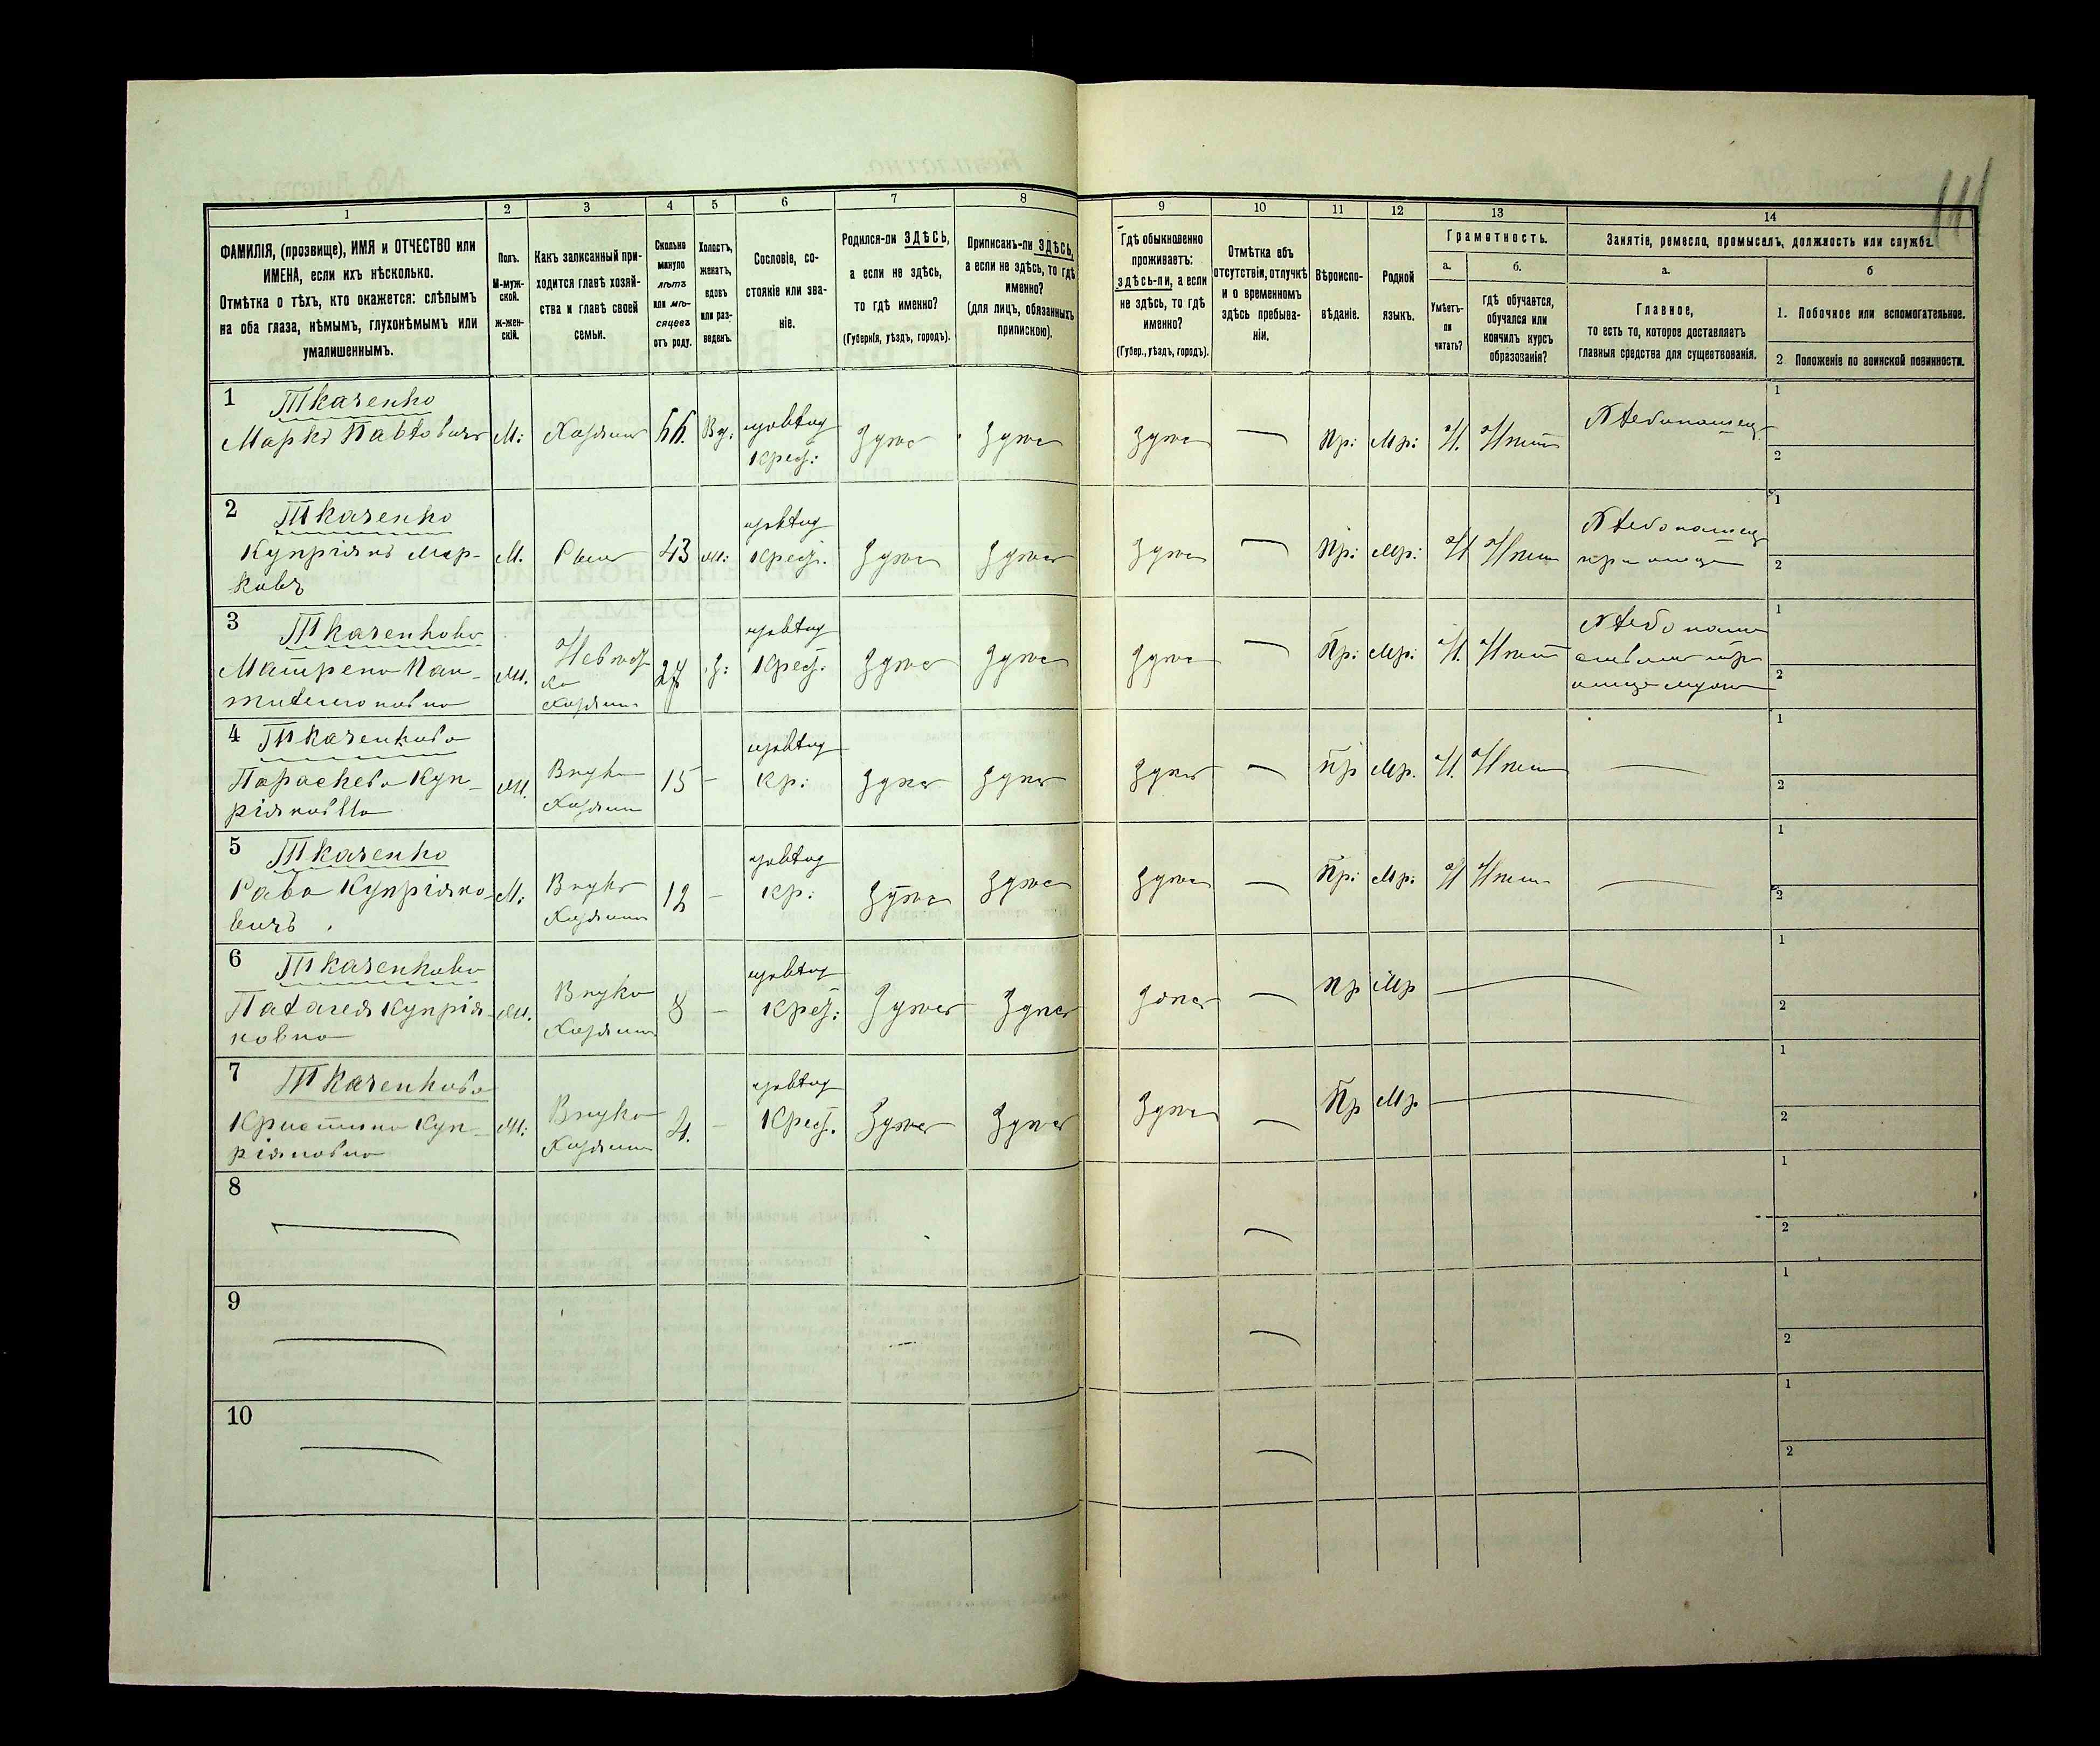 111
1 2 3 4 5 6 7 8 9 10 11 12 13 14
ФАМИЛІЯ, (прозвище), ИМЯ и ОТЧЕСТВО или
ИМЕНА, если ихъ нѣсколько.
Отмѣтка о тѣхъ, кто окажется: слѣпымъ
на оба глаза, нѣмымъ, глухонѣмымъ или
умалишеннымъ.
Полъ.
М-муж-
ской.
ж-жен-
скій.
Какъ записанный при-
ходится главѣ хозяй-
ства и главѣ своей
семьи.
Сколько
минуло
лѣтъ
или мѣ-
сяцевъ
отъ роду.
Холостъ,
женатъ,
вдовъ
или раз-
веденъ.
Сословіе, со-
стояніе или зва-
ніе.
Родился-ли ЗДѢСЬ,
а если не здѣсь,
то гдѣ именно?
(Губернія, уѣздъ, городъ).
Приписанъ-ли ЗДѢСЬ,
а если не здѣсь, то гдѣ
именно?
(для лицъ, обязанныхъ
припискою).
Гдѣ обыкновенно
проживаетъ:
здѣсь-ли, а если
не здѣсь, то гдѣ
именно?
(Губер., уѣздъ, городъ).
Отмѣтка объ
отсутствіи, отлучкѣ
и о временномъ
здѣсь пребыва-
ніи.
Вѣроиспо-
вѣданіе.
Родной
языкъ.
Грамотность.
а.
Умѣетъ-
ли
читать?
б.
гдѣ обучается,
обучался или
кончилъ курсъ
образованія?
Занятіе, ремесло, промыселъ, должность или служба.
а.
Главное,
то есть то, которое доставляетъ
главныя средства для существованія.
б
1. Побочное или вспомогательное.
2 Положеніе по воинской повинности.
1 Ткаченко
Марко Павловичъ
М:
Хозяинъ
66.
Вд:
Крест:
Здѣсь
Здѣсь
Здѣсь
Пр:
Мр:
Н.
Нѣтъ
Хлѣбопашец
1
2
2 Ткаченко
Купріянъ Мар-
ковъ
М.
Сынъ
43
ж:
Крест.
Здѣсь
Здѣсь
Здѣсь
Пр:
Мр:
Н
Нѣтъ
Хлѣбопашец
при отце
1
2
3 Ткаченкова
Матрена Пан-
телимоновна
Ж.
Невѣст
ка
Хозяина
З:
Крест:
Здѣсь
Здѣсь
Здѣсь
Пр:
Мр:
Н.
Нѣтъ
1
2
4 Ткаченкова
Параскева Куп-
ріяновна
Ж.
Внука
Хозяина
15
Кр:
Здѣсь
Здѣсь
Здѣсь
Пр
Мр.
Н.
Нѣтъ
1
2
5 Ткаченко
Сава Купріяно-
вичъ
М:
Внукъ
Хозяина
12
Кр:
Здѣсь
Здѣсь
Здѣсь
Пр:
Мр:
Н
Нѣтъ
1
2
6 Ткаченкова
Палагея Купрія-
новна
Ж.
Внука
Хозяина
8
Крест:
Здѣсь
Здѣсь
Здѣсь
Пр
Мр
1
2
7 Ткаченкова
Кристина Куп-
ріяновна
Ж:
Внука
Хозяина
4.
Крест.
Здѣсь
Здѣсь
Здѣсь
Пр
Мр
1
2
8
1
2
9
1
2
10
1
2